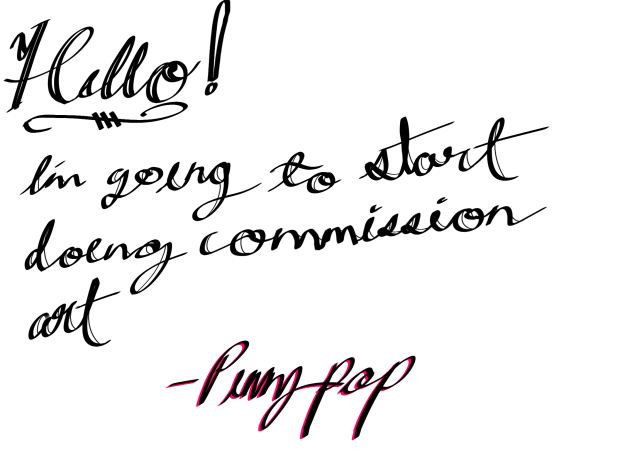 Hello!
I'm going to start
doing commission
art
-Pennypop